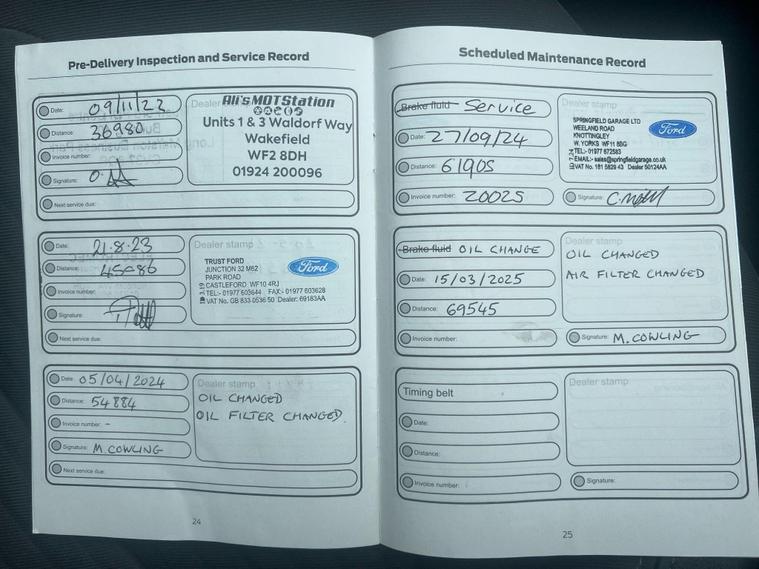 Pre-Delivery Inspection and Service Record
Date: 09/11/22
Distance: 36980
Invoice number:
Signature:
Next service due:
Dealer stamp
Ali's MOT Station
Units 1 & 3 Waldorf Way
Wakefield
WF2 8DH
01924 200096
Date: 21.8.23
Distance: 45686
Invoice number:
Signature:
Next service due:
Dealer stamp
TRUST FORD
JUNCTION 32 M62
PARK ROAD
CASTLEFORD WF10 4RJ
TEL:- 01977 603644 FAX:- 01977 603628
VAT No. GB 833 0536 50 Dealer: 69183AA
Ford
Date: 05/04/2024
Distance: 54884
Invoice number: -
Signature: M.COWLING
Next service due:
Dealer stamp
OIL CHANGED
OIL FILTER CHANGED
24
Scheduled Maintenance Record
Brake fluid Service
Date: 27/09/24
Distance: 61905
Invoice number: 20025
Dealer stamp
SPRINGFIELD GARAGE LTD
WEELAND ROAD
KNOTTINGLEY
W. YORKS WF11 8BG
TEL:- 01977 672583
EMAIL:- sales@springfieldgarage.co.uk
VAT No. 181 5829 43 Dealer 50124AA
Ford
Signature:
Brake fluid OIL CHANGE
Date: 15/03/2025
Distance: 69545
Invoice number:
Dealer stamp
OIL CHANGED
AIR FILTER CHANGED
Signature: M.COWLING
Timing belt
Date:
Distance:
Invoice number:
Dealer stamp
Signature:
25